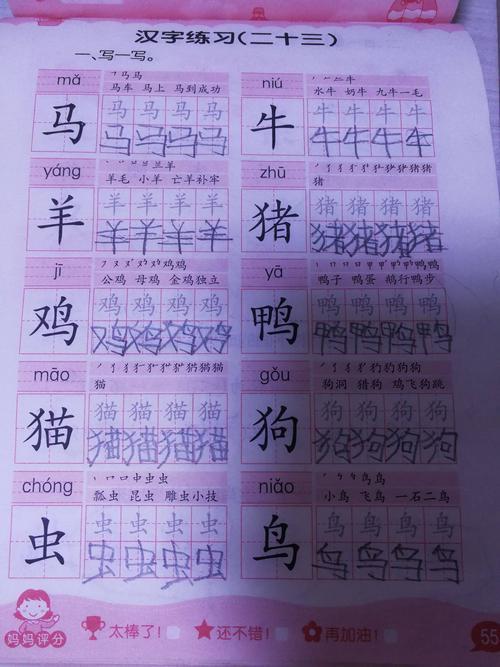 汉字练习(二十三)
一、写一写。
mǎ
马
马车 马上 马到成功
马 马 马 马
马 马 马 马
niú
牛
水牛 奶牛 九牛一毛
牛 牛 牛 牛
牛 牛 牛 牛
yáng
羊
羊毛 小羊 亡羊补牢
羊 羊 羊 羊
羊 羊 羊 羊
zhū
猪
猪 猪 猪 猪
猪 猪 猪 猪
jī
鸡
公鸡 母鸡 金鸡独立
鸡 鸡 鸡 鸡
鸡 鸡 鸡 鸡
yā
鸭
鸭子 鸭蛋 鹅行鸭步
鸭 鸭 鸭 鸭
鸭 鸭 鸭 鸭
māo
猫
猫 猫 猫 猫
猫 猫 猫 猫
gǒu
狗
狗洞 猎狗 鸡飞狗跳
狗 狗 狗 狗
狗 狗 狗 狗
chóng
虫
瓢虫 昆虫 雕虫小技
虫 虫 虫 虫
虫 虫 虫 虫
niǎo
鸟
小鸟 飞鸟 一石二鸟
鸟 鸟 鸟 鸟
鸟 鸟 鸟 鸟
妈妈评分 太棒了! 还不错! 再加油! 55